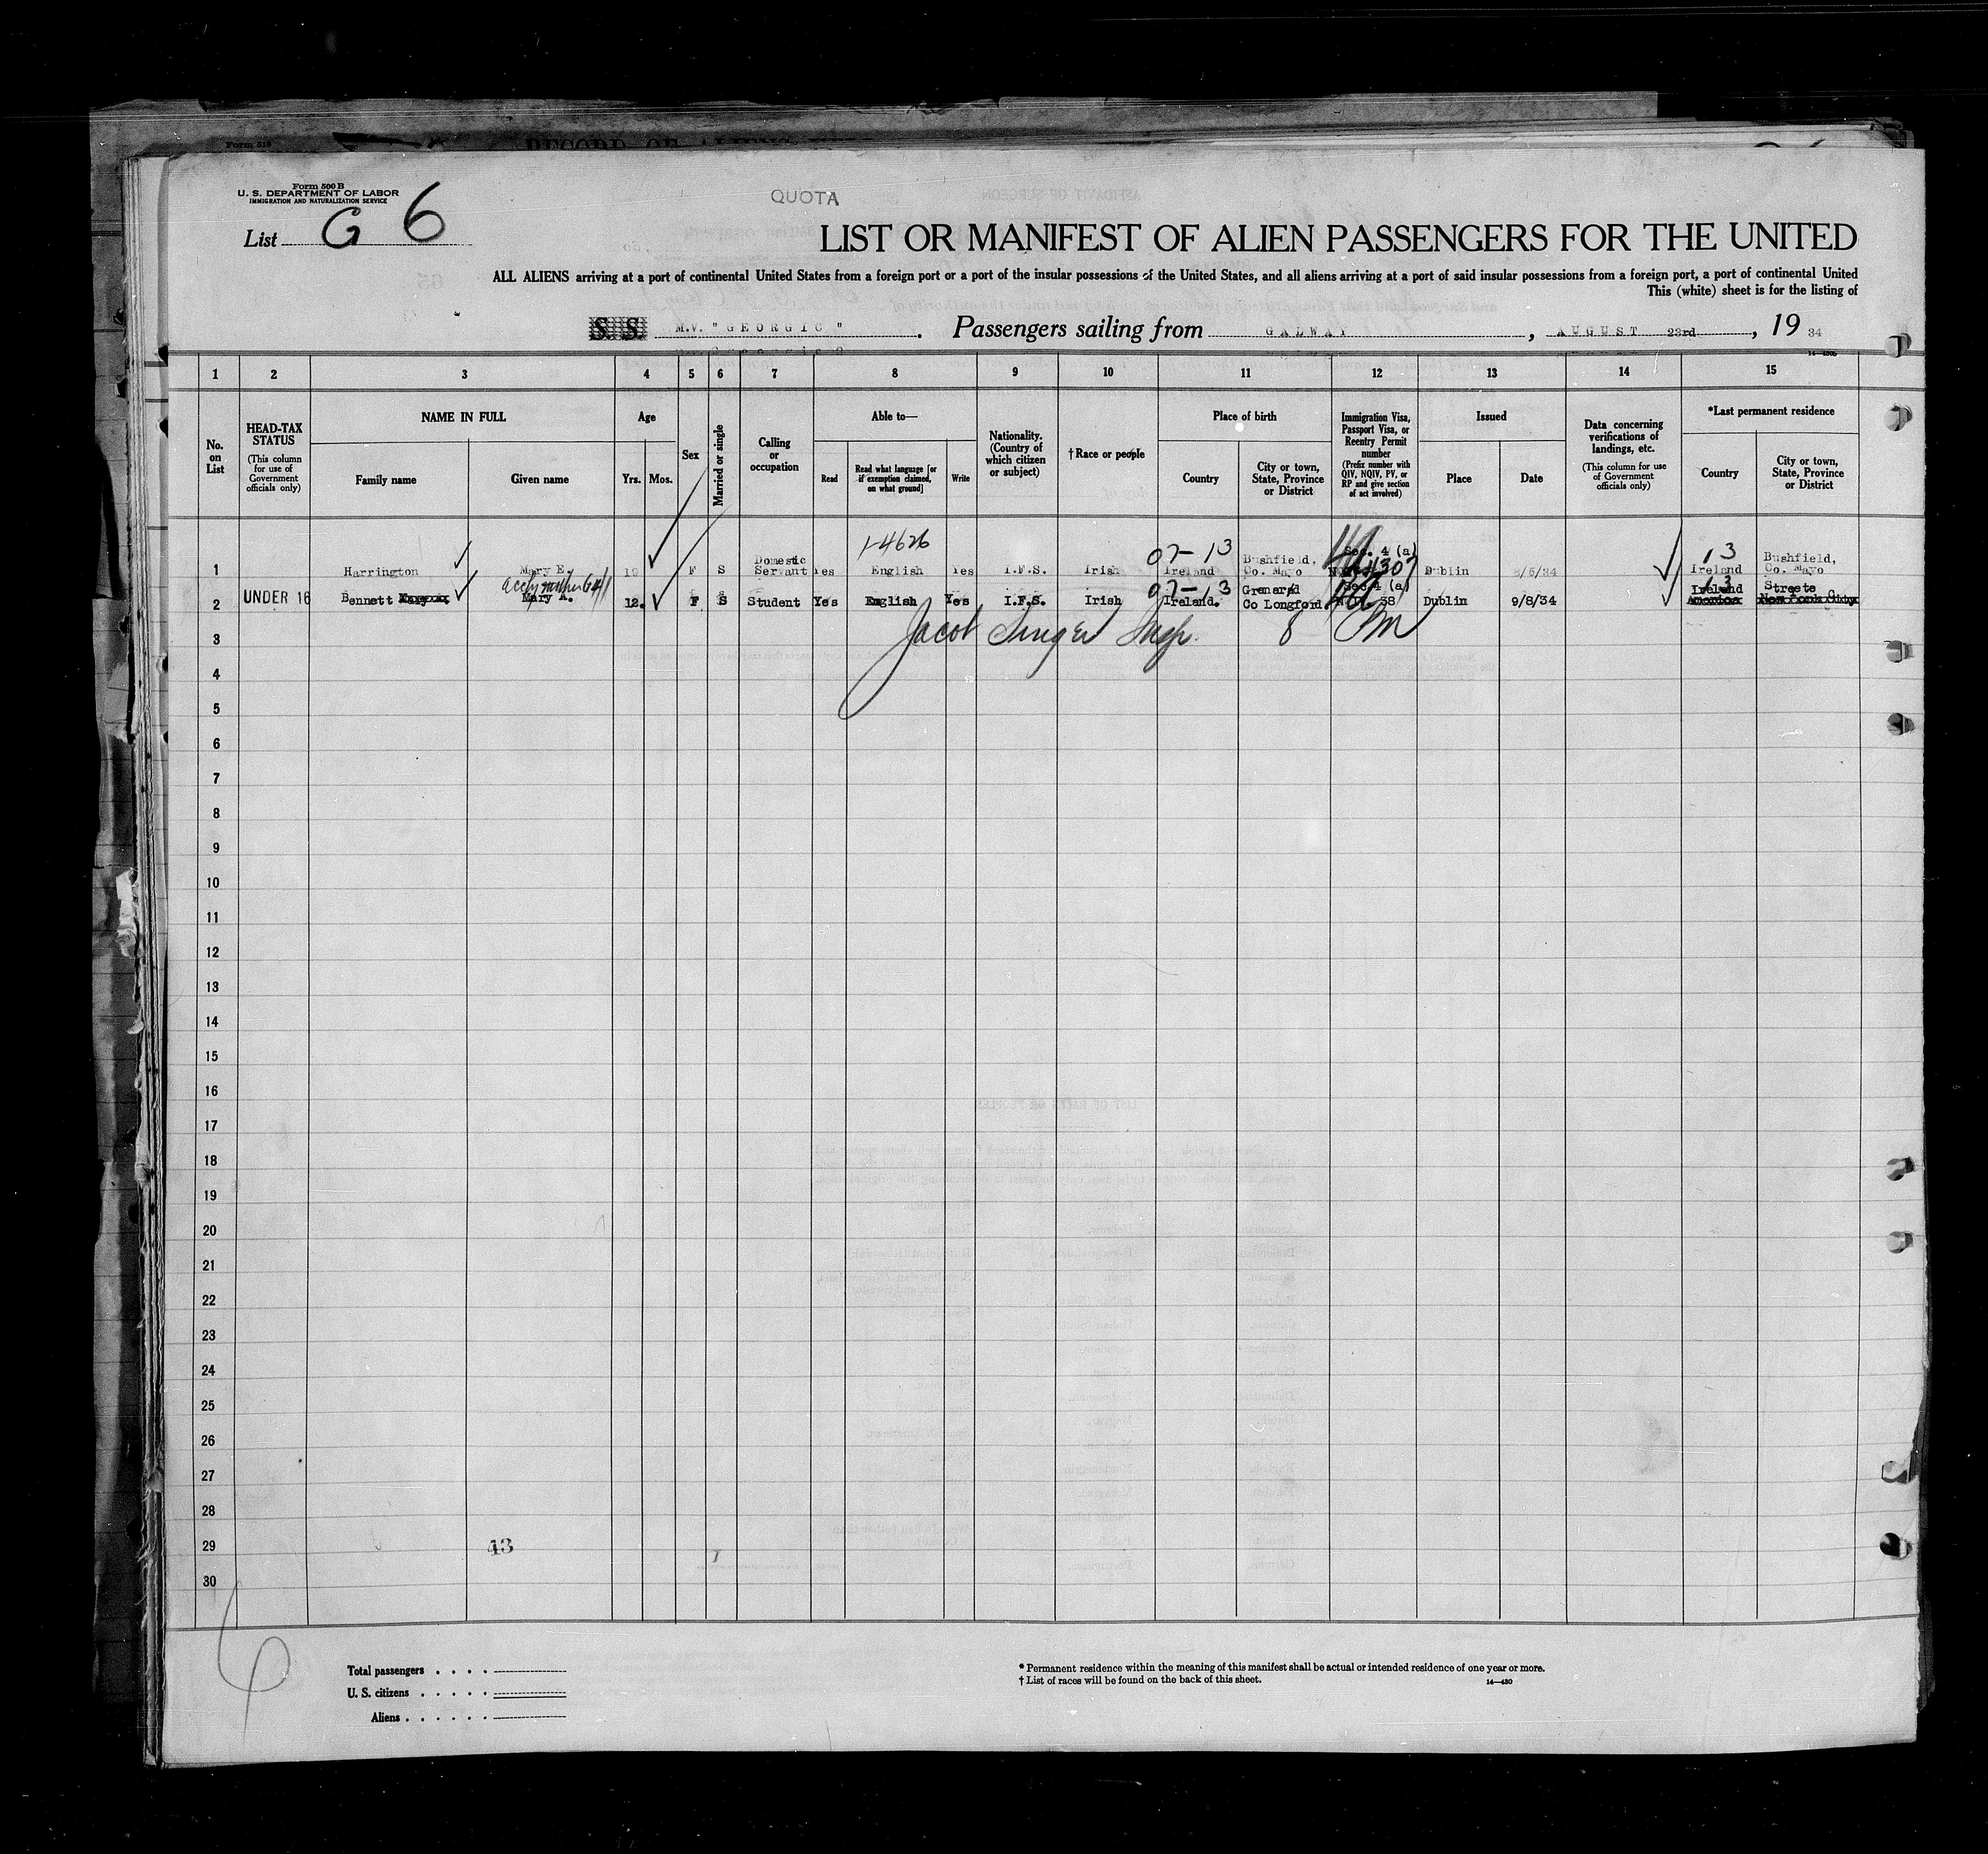 Form 500 B
U. S. DEPARTMENT OF LABOR
IMMIGRATION AND NATURALIZATION SERVICE
QUOTA
List G 6
LIST OR MANIFEST OF ALIEN PASSENGERS FOR THE UNITED
ALL ALIENS arriving at a port of continental United States from a foreign port or a port of the insular possessions of the United States, and all aliens arriving at a port of said insular possessions from a foreign port, a port of continental United
This (white) sheet is for the listing of
S S M.V. "GEORGIC". Passengers sailing from GALWAY, AUGUST 23rd, 19 34
1 2 3 4 5 6 7 8 9 10 11 12 13 14 15
No. on List
HEAD-TAX STATUS
(This column for use of Government officials only)
NAME IN FULL
Family name
Given name
Age
Yrs. Mos.
Sex
Married or single
Calling or occupation
Able to—
Read
Read what language [or if exemption claimed, on what ground]
Write
Nationality. (Country of which citizen or subject)
†Race or people
Place of birth
Country
City or town, State, Province or District
Immigration Visa, Passport Visa, or Reentry Permit number
(Prefix number with QIV, NQIV, PV, or RP and give section of act involved)
Issued
Place
Date
Data concerning verifications of landings, etc.
(This column for use of Government officials only)
*Last permanent residence
Country
City or town, State, Province or District
1-4626
07-13
Sec. 4 (a)
13
1 Harrington Mary E. 19 F S Domestic Servant Yes English Yes I.F.S. Irish Ireland Bushfield, Co. Mayo Dublin Ireland Bushfield, Co. Mayo
07-13
Sec 4 (a)
13
2 UNDER 16 Bennett Mary A. 12. F S Student Yes English Yes I.F.S. Irish Ireland. Granard Co Longford 38 Dublin 9/8/34 Ireland Streete
America New York City
Jacob Singer Insp. 8
3
4
5
6
7
8
9
10
11
12
13
14
15
16
17
18
19
20
21
22
23
24
25
26
27
28
29 43
30
6
Total passengers
U. S. citizens
Aliens
* Permanent residence within the meaning of this manifest shall be actual or intended residence of one year or more.
† List of races will be found on the back of this sheet.
14—430